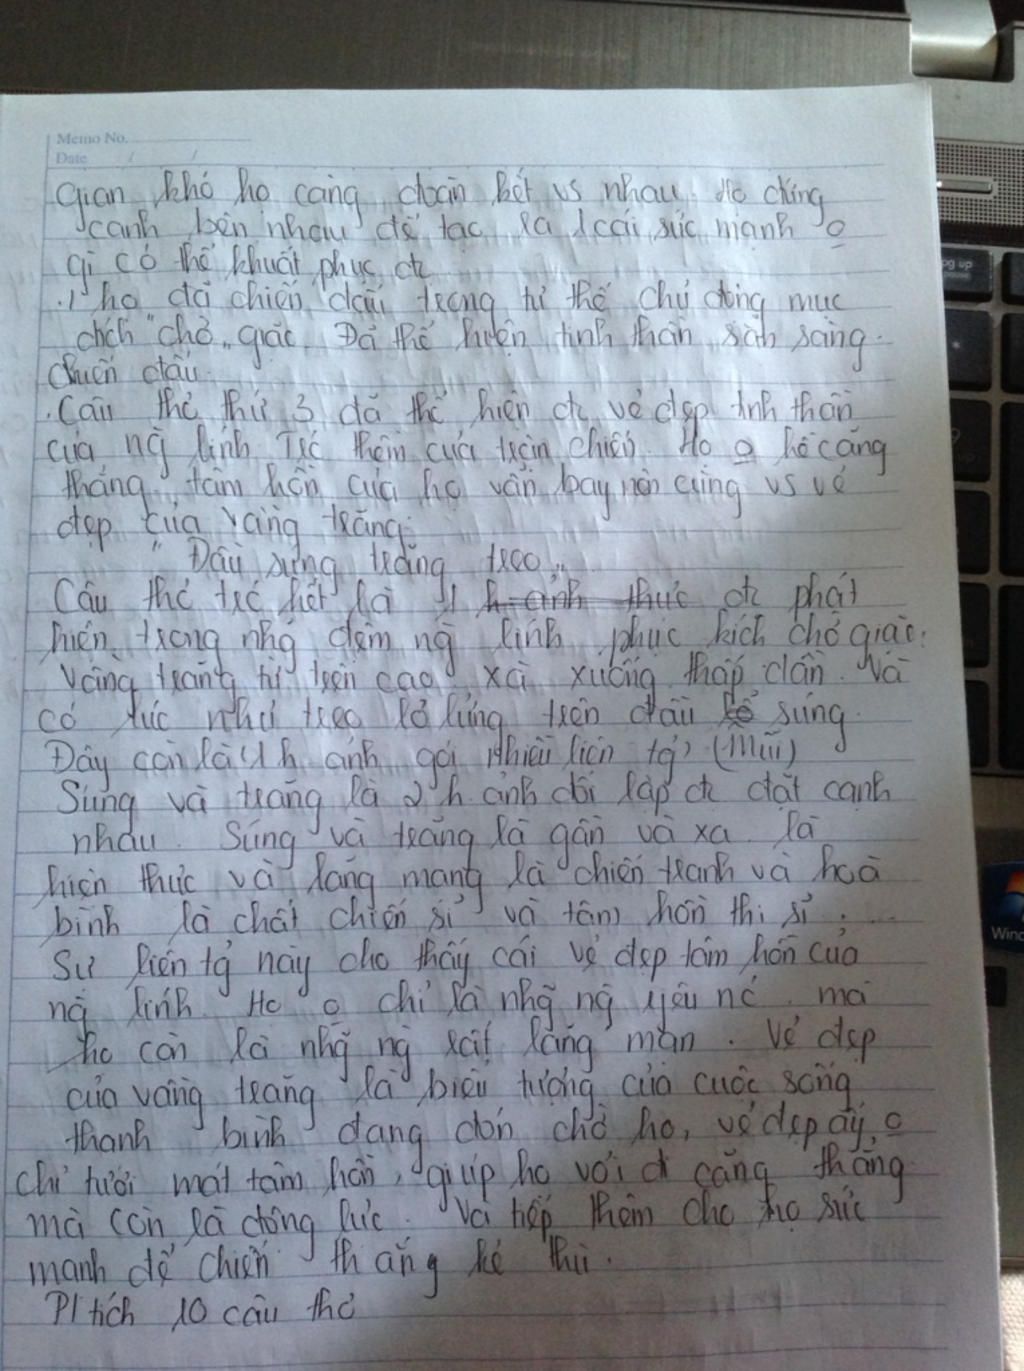 Memo No.
Date / /
gian khó họ càng đoàn kết vs nhau. Họ đứng
cạnh bên nhau để tạc ra 1 cái sức mạnh o
gì có thể khuất phục đc
họ đã chiến đấu trong tư thế chủ động mục
đích "chờ" giặc. Đã thể hiện tinh thần sẵn sàng
chiến đấu.
. Câu thơ thứ 3 đã thể hiện đc vẻ đẹp tinh thần
của ng lính. Trc thềm của trận chiến. Họ o hề căng
thẳng, tâm hồn của họ vẫn bay nên cùng vs vẻ
đẹp của vầng trăng.
"Đầu súng trăng treo"
Câu thơ trc hết là 1 h ảnh thực đc phát
hiện trong nhg đêm ng lính phục kích chờ giặc.
Vầng trăng từ trên cao xà xuống thấp dần. Và
có lúc như treo lơ lửng trên đầu súng.
Đây còn là 1 h ảnh gợi nhiều liên tg (Mũi)
Súng và trăng là 2 h. ảnh đối lập đc đặt cạnh
nhau. Súng và trăng là gần và xa. là
hiện thực và lãng mạng là chiến tranh và hoà
bình là chất chiến sĩ và tâm hồn thi sĩ. ...
Sự liên tg này cho thấy cái vẻ đẹp tâm hồn của
ng lính. Họ o chỉ là nhg ng yêu nc. mà
họ còn là nhg ng rất lãng mạn. Vẻ đẹp
của vầng trăng là biểu tượng của cuộc sống
thanh bình đang đón chờ họ, vẻ đẹp ấy o
chỉ tưới mát tâm hồn, giúp họ vơi đi căng thẳng
mà còn là động lực. Và tiếp thêm cho họ sức
mạnh để chiến thắng kẻ thù.
PT tích 10 câu thơ
pg up
Wind